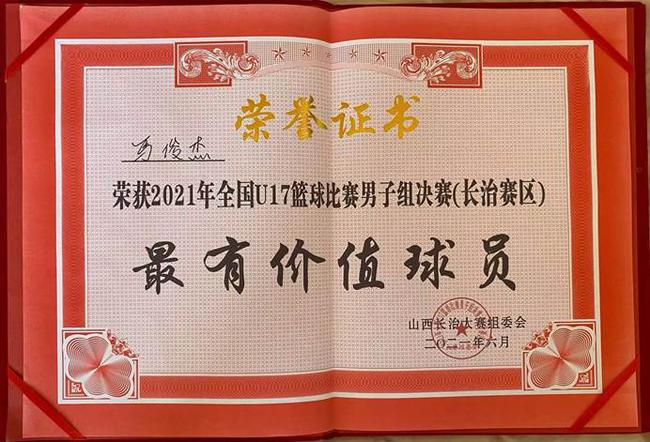 荣誉证书
马俊杰
荣获2021年全国U17篮球比赛男子组决赛(长治赛区)
最有价值球员
山西长治大赛组委会
二〇二一年六月